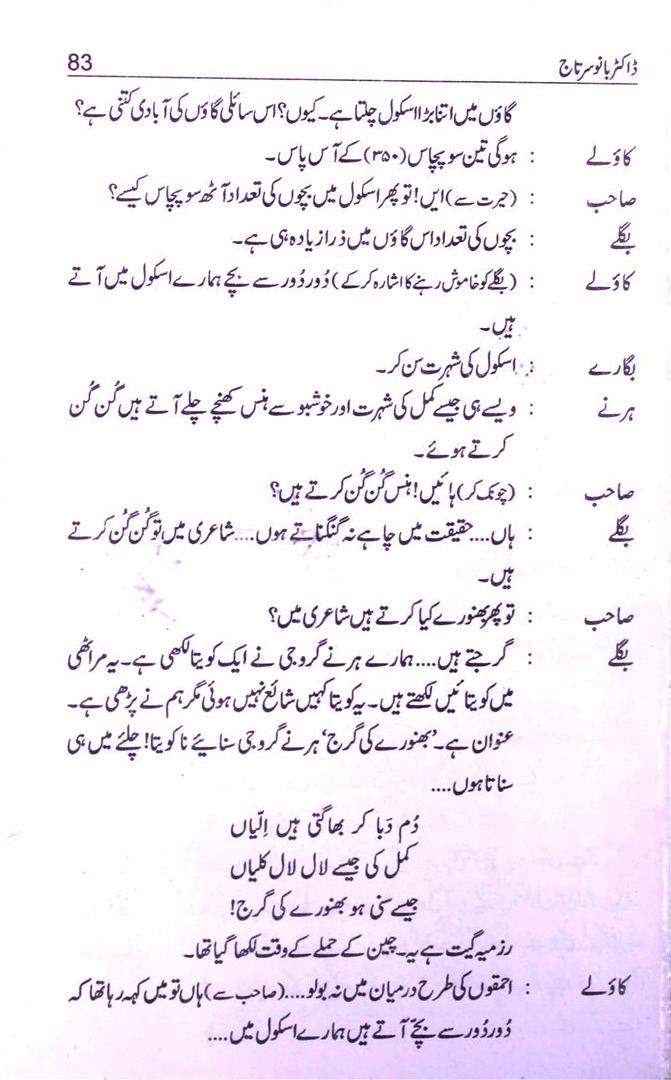 ڈاکٹر بانو سرتاج 83
گاؤں میں اتنا بڑا اسکول چلتا ہے۔ کیوں؟ اس سائلی گاؤں کی آبادی کتنی ہے؟
کاؤلے : ہوگی تین سو پچاس (۳۵۰) کے آس پاس۔
صاحب : (حیرت سے) ایں! تو پھر اسکول میں بچوں کی تعداد آٹھ سو پچاس کیسے؟
بگلے : بچوں کی تعداد اس گاؤں میں ذرا زیادہ ہی ہے۔
کاؤلے : (بگلے کو خاموش رہنے کا اشارہ کر کے) دُور دُور سے بچے ہمارے اسکول میں آتے
ہیں۔
بگارے : اسکول کی شہرت سن کر۔
ہرنے : ویسے ہی جیسے کمل کی شہرت اور خوشبو سے ہنس کھنچے چلے آتے ہیں گُن گُن
کرتے ہوئے۔
صاحب : (چونک کر) ہائیں! ہنس گُن گُن کرتے ہیں؟
بگلے : ہاں.... حقیقت میں چاہے نہ گنگناتے ہوں.... شاعری میں تو گُن گُن کرتے
ہیں۔
صاحب : تو پھر بھنورے کیا کرتے ہیں شاعری میں؟
بگلے : گرجتے ہیں.... ہمارے ہرنے گروجی نے ایک کویتا لکھی ہے۔ یہ مراٹھی
میں کویتائیں لکھتے ہیں۔ یہ کویتا کہیں شائع نہیں ہوئی مگر ہم نے پڑھی ہے۔
عنوان ہے۔ ’بھنورے کی گرج‘ ہرنے گروجی سنائیے نا کویتا! چلئے میں ہی
سناتا ہوں....
دُم دَبا کر بھاگتی ہیں اِلّیاں
کمل کی جیسے لال لال کلیاں
جیسے سنی ہو بھنورے کی گرج!
رزمیہ گیت ہے یہ۔ چین کے حملے کے وقت لکھا گیا تھا۔
کاؤلے : احمقوں کی طرح درمیان میں نہ بولو.... (صاحب سے) ہاں تو میں کہہ رہا تھا کہ
دُور دُور سے بچّے آتے ہیں ہمارے اسکول میں....